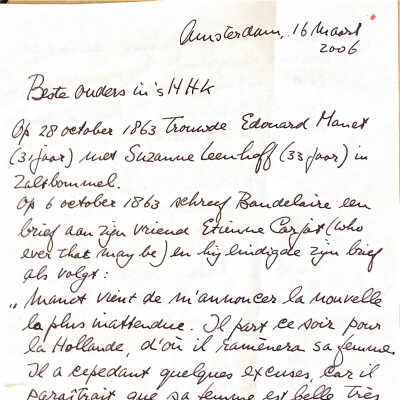 Amsterdam, 16 Maart
2006
Beste ouders in 's HHK
Op 28 october 1863 Trouwde Edouard Manet
(31 jaar) met Suzanne Leenhoff (33 jaar) in
Zaltbommel.
Op 6 october 1863 schreef Baudelaire een
brief aan zijn vriend Etienne Carjat (who
ever that may be) en hij eindigde zijn brief
als volgt:
„Manet vient de m'annoncer la nouvelle
la plus inattendue. Il part ce soir pour
la Hollande, d'où il ramènera sa femme.
Il a cependant quelques excuses, car il
paraîtrait que sa femme est belle très